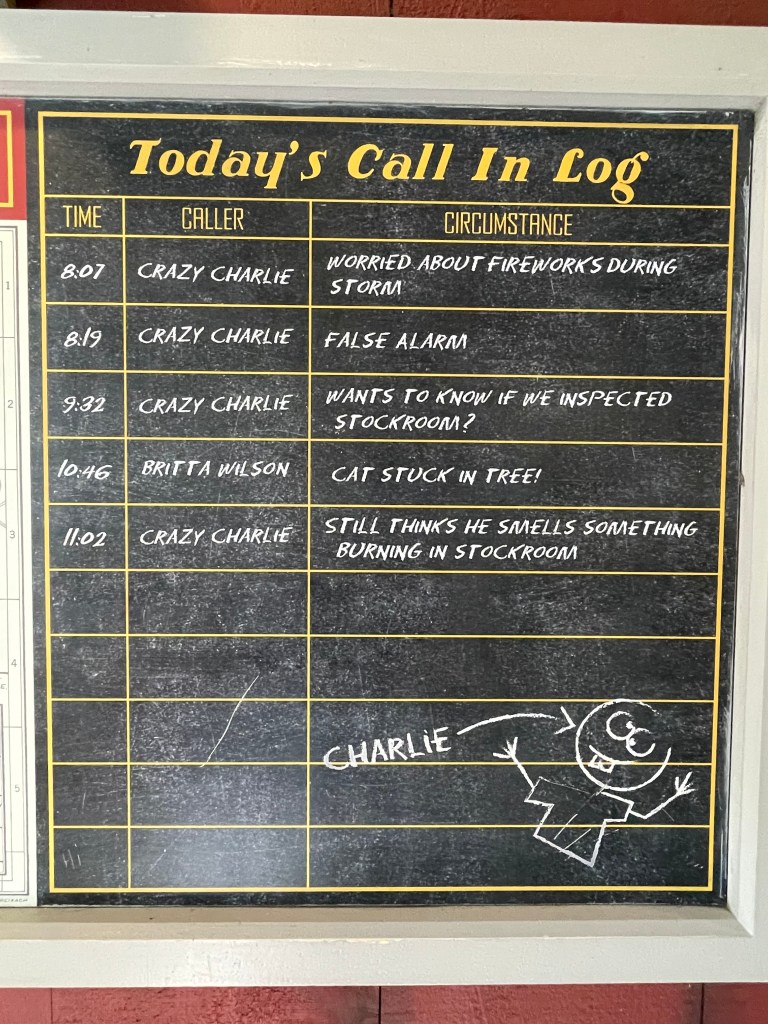 Today's Call In Log
TIME CALLER CIRCUMSTANCE
8:07 CRAZY CHARLIE WORRIED ABOUT FIREWORKS DURING
STORM
8:19 CRAZY CHARLIE FALSE ALARM
9:32 CRAZY CHARLIE WANTS TO KNOW IF WE INSPECTED
STOCKROOM?
10:46 BRITTA WILSON CAT STUCK IN TREE!
11:02 CRAZY CHARLIE STILL THINKS HE SMELLS SOMETHING
BURNING IN STOCKROOM
CHARLIE
Hi
1
2
3
4
5